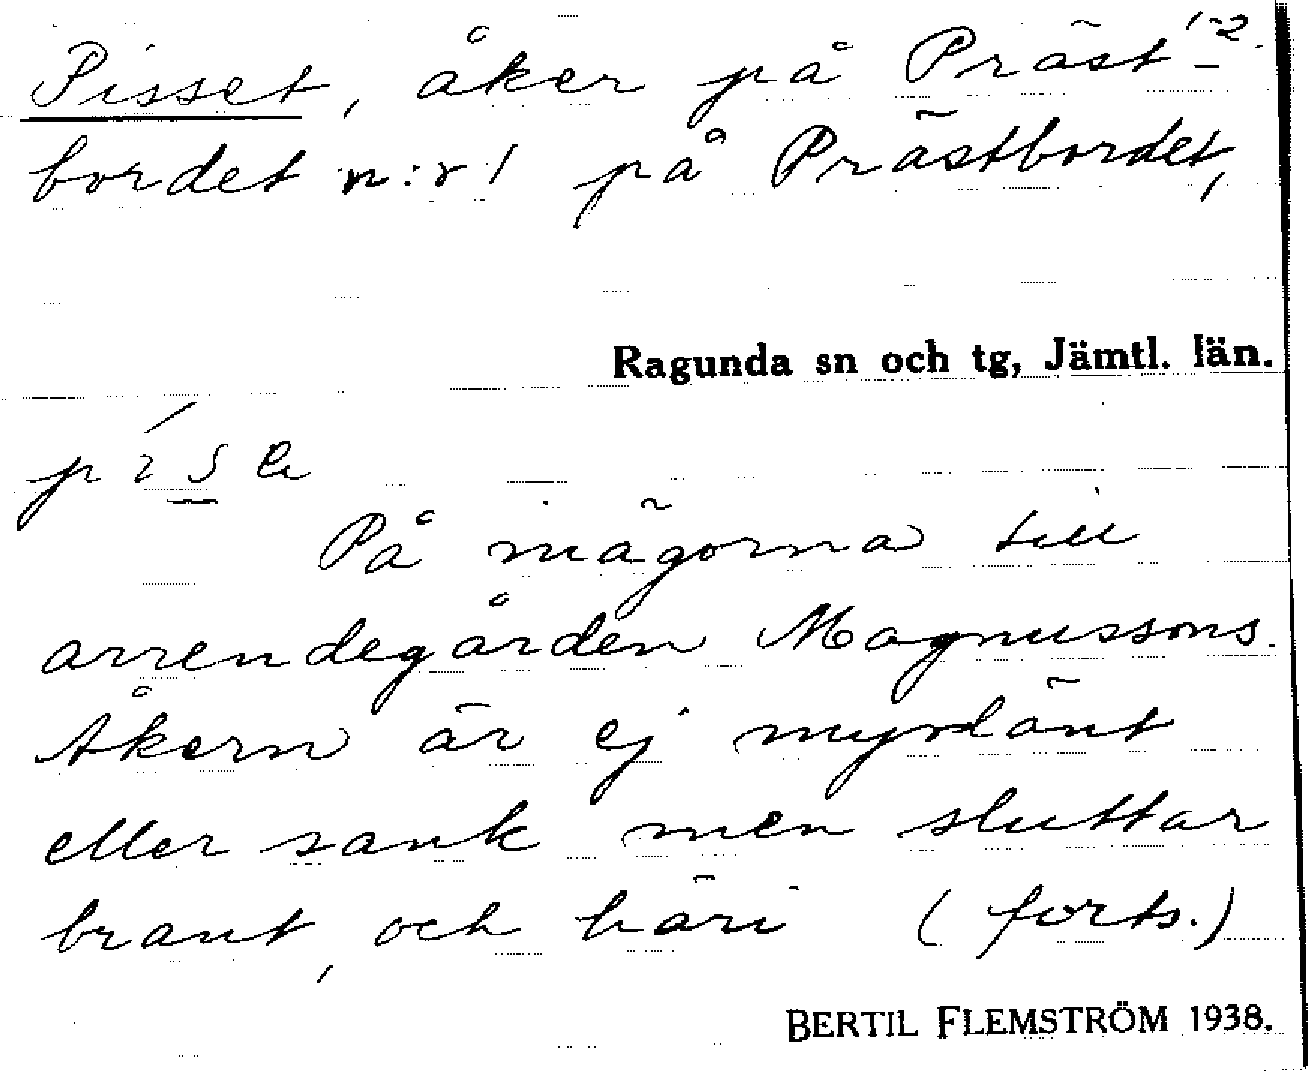 Pisset, åker på Präst- 1-2.
bordet n:r 1 på Prästbordet,
Ragunda sn och tg, Jämtl. län.
På inägorna till
arrendegården Magnussons.
Åkern är ej myrlänt
eller sank men sluttar
brant, och häri (forts.)
BERTIL FLEMSTRÖM 1938.